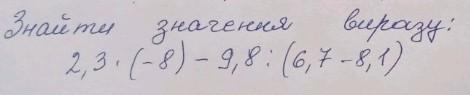 Знайти значення виразу:
2,3 · (-8) - 9,8 : (6,7 - 8,1)